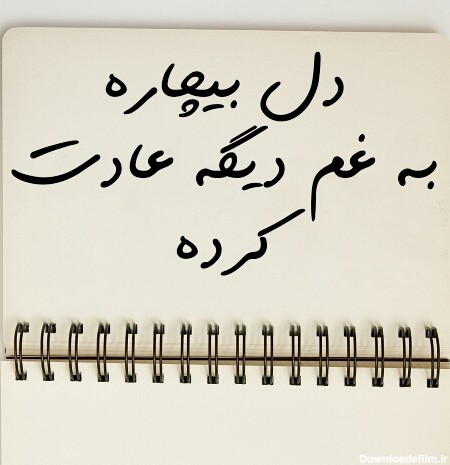 دل بیچاره
به غم دیگه عادت
کرده
Downloadefilm.ir